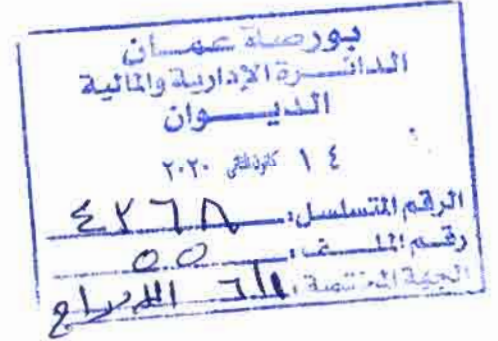 بورصة عمان
الدائرة الإدارية والمالية
الديوان
١٤ كانون الثاني ٢٠٢٠
الرقم المتسلسل: ٤٢٦٨
رقم الملف: ٥٥
الجهة المختصة: الإدراج